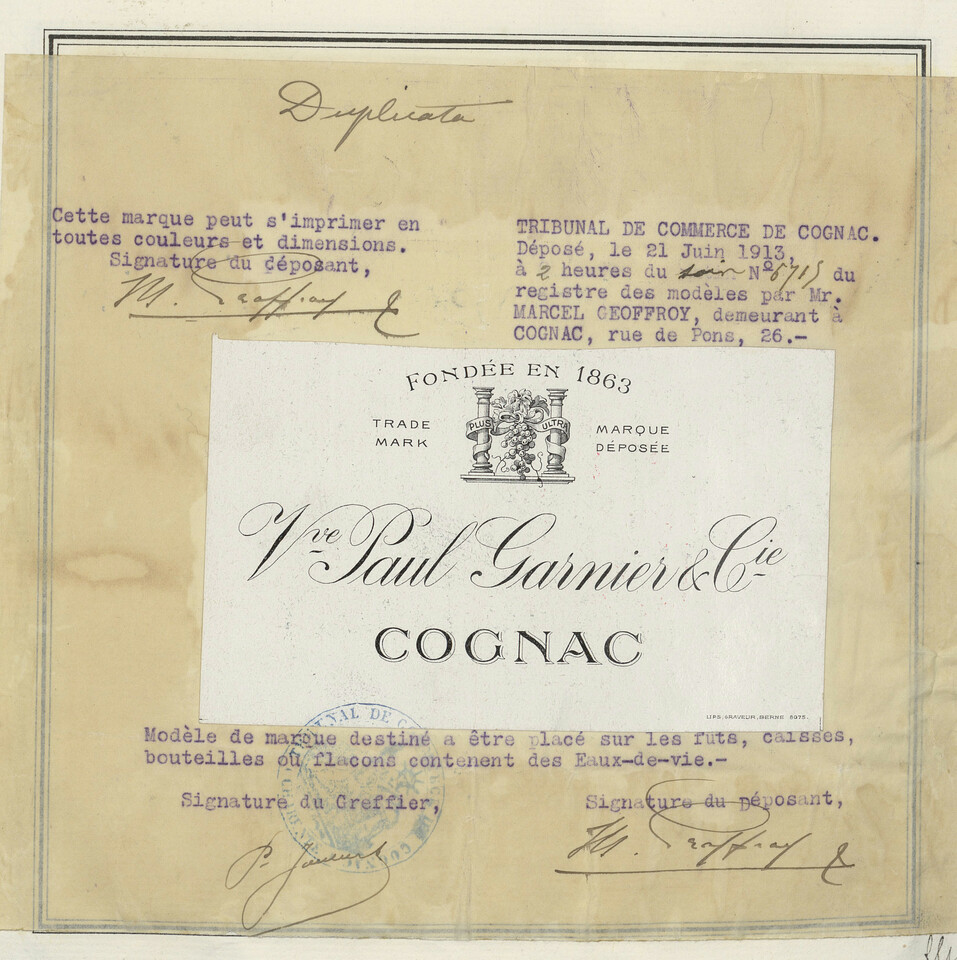 Duplicata
Cette marque peut s'imprimer en
toutes couleurs et dimensions.
Signature du déposant,
M. Geoffroy
TRIBUNAL DE COMMERCE DE COGNAC.
Déposé, le 21 Juin 1913,
à 2 heures du soir No 5715 du
registre des modèles par Mr.
MARCEL GEOFFROY, demeurant à
COGNAC, rue de Pons, 26.-
FONDÉE EN 1863
TRADE MARK
PLUS ULTRA
MARQUE DÉPOSÉE
Vve Paul Garnier & Cie
COGNAC
LIPS, GRAVEUR, BERNE 5975.
Modèle de marque destiné a être placé sur les futs, caisses,
bouteilles ou flacons contenent des Eaux-de-vie.-
Signature du Greffier,
Signature du Déposant,
M. Geoffroy